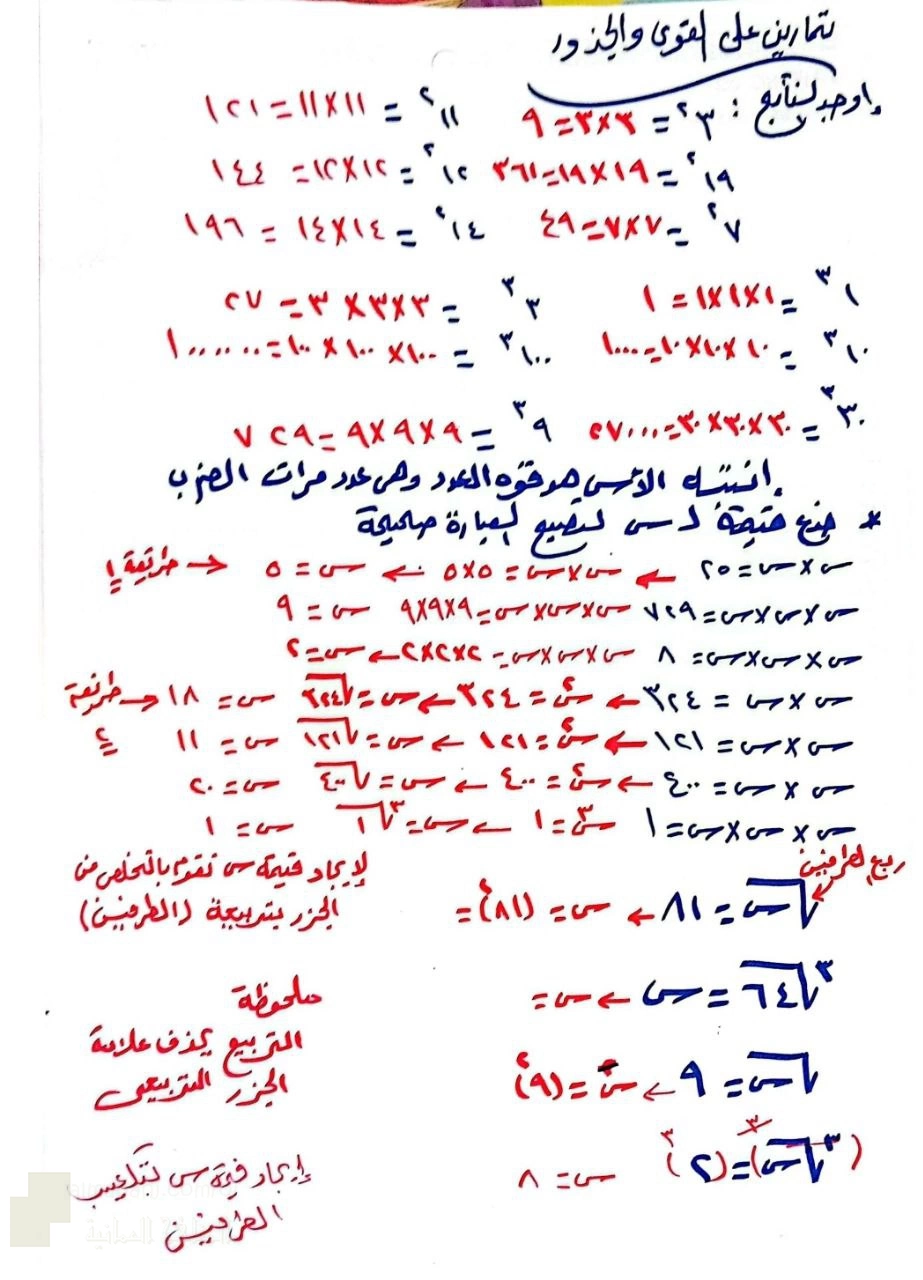 تمارين على القوى والجذور
إوجد لنتائج :
٣² = ٣×٣ = ٩    ١١² = ١١×١١ = ١٢١
١٩² = ١٩×١٩ = ٣٦١    ١٢² = ١٢×١٢ = ١٤٤
٧² = ٧×٧ = ٤٩    ١٤² = ١٤×١٤ = ١٩٦
١³ = ١×١×١ = ١    ٣³ = ٣×٣×٣ = ٢٧
١٠³ = ١٠×١٠×١٠ = ١٠٠٠    ١٠٠³ = ١٠٠×١٠٠×١٠٠ = ١٠٠٠٠٠٠
٣٠³ = ٣٠×٣٠×٣٠ = ٢٧٠٠٠    ٩³ = ٩×٩×٩ = ٧٢٩
إنتبه الأس هو قوه العدد وهى عدد مرات الضرب
* ضع قيمة لـ س لتصبح لعبارة صحيحة
س×س = ٢٥ ← س×س = ٥×٥ ← س = ٥ ← طريقة ١
س×س×س = ٧٢٩ س×س×س = ٩×٩×٩ س = ٩
س×س×س = ٨ س×س×س = ٢×٢×٢ ← س = ٢
س×س = ٣٢٤ ← س² = ٣٢٤ ← س = √٣٢٤ س = ١٨ ← طريقة
س×س = ١٢١ ← س² = ١٢١ ← س = √١٢١ س = ١١ ٢
س×س = ٤٠٠ ← س² = ٤٠٠ ← س = √٤٠٠ س = ٢٠
س×س×س = ١ س³ = ١ ← س = ³√١ س = ١
ربع لطرفين
√س = ٨١ ← س = (٨١)² =
لإيجاد قيمة س نقوم بالتخلص من
الجزر بتربيعة (الطرفين)
³√٦٤ = س ← س =
ملحوظة
التربيع يحذف علامة
الجزر التربيعى
√س = ٩ ← س² = (٩)²
(³√س)³ = (٢)³ س = ٨
إيجاد قيمة س لتكعيب
الطرفين